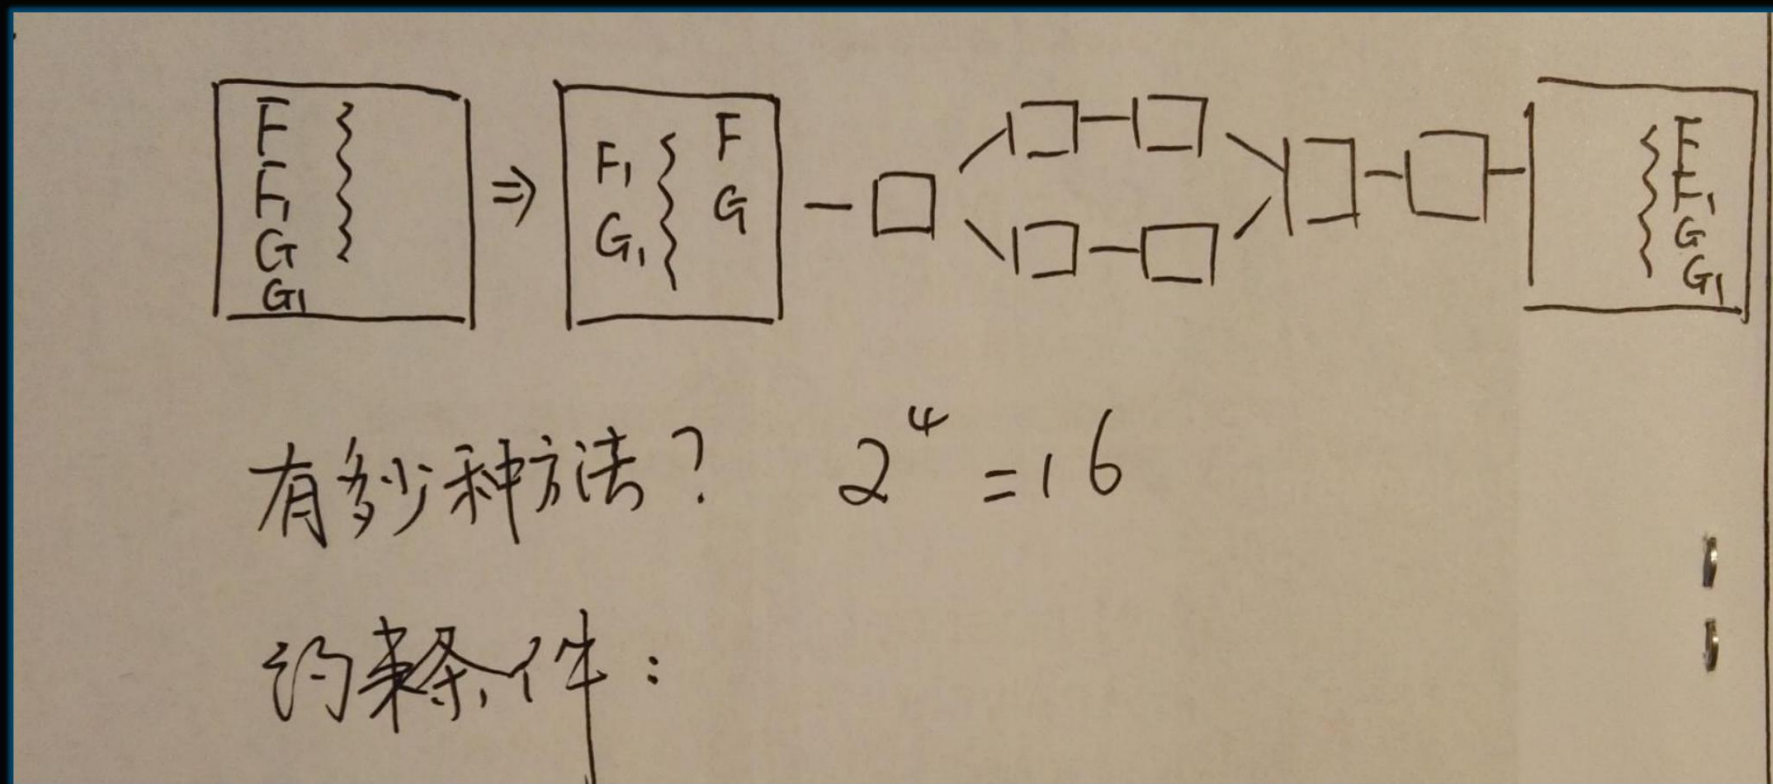 F
F₁
G
G₁
⇒
F₁ F
G₁ G
F
F₁
G
G₁
有多少种方法? 2⁴ = 16
约束条件: